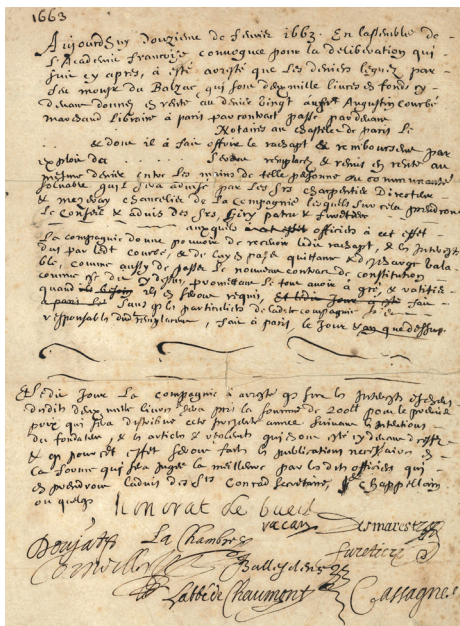 1663
Aujourdhuy douzieme de fevrier 1663. En lassemblee de
L'Academie francoise convoquee pour la deliberation qui
suit cy apres, a esté aresté que les deniers leguez par
feu monsr de Balzac, qui sont deux mille livres en fond cy
devant donnez en rente au denier vingt augst Augustin Courbé
marchand Libraire a paris par contract passé pardevant
Notaires au chastelet de paris le
& dont il a fait offrir le rachapt & remboursement par
exploit du seront remplacez & remis en rente au
mesme denier entre les mains de telle personne ou communauté
solvable qui sera admise par les Srs charpentier Directeur
& mezeray chancelier de la compagnie lesquels sur cela prendront
Le Conseil & advis des Srs, Giry patru & furetiere
auxquels officiers a cet effet
La compagnie donne pouvoir de recevoir ledit rachapt, & les interests
dus par ledt Courbé, & de luy en passer quittance & descharge vala
ble, comme aussy de passer le nouveau contract de constitution
comme dit est cy dessus, promettant le tout avoir a gré, & ratifier
quand ils en seront requis, fait
a paris sans que les particuliers de ladite compagnie
responsables dud remplacement, fait a paris, le jour & an que dessus.
Et ledit jour La compagnie a aresté que sur les interests
desdits deux mille livres sera pris la somme de 200ll pour le premier
prix qui sera distribué cette presente annee suivant les intentions
du fondateur, & les articles & statuts qui en ont esté cy devant
& que pour cet effet seront faites les publications necessaires en
La forme qui sera jugée la meilleure par lesdits officiers qui
en prendront ladvis des Srs Conrad Secretaire, & chappellain
ou quelqs
Honorat de bueil
racan Desmarests
Doujat La Chambre furetiere
Corneille Ballesdens
L'abbé de Chaumont Cassagnes